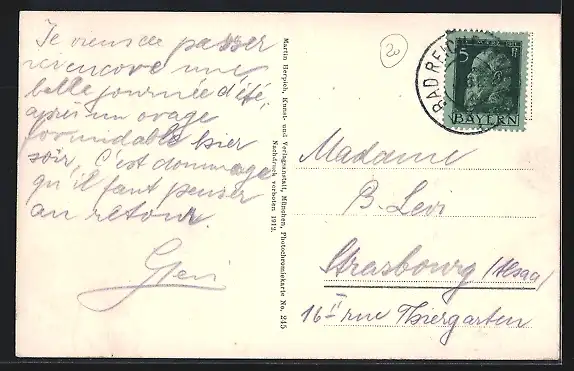 Je viens de passer
encore une
belle journée d'été,
après un orage
formidable hier
soir, C'est dommage
qu'il faut penser
au retour.
Martin Herpich, Kunst- und Verlagsanstalt, München, Photochromiekarte No. 245
Nachdruck verboten 1912.
20
BAD REICH
5
BAYERN
Madame
B. Levi
Strasbourg (Alsace)
16 I rue Thiergarten